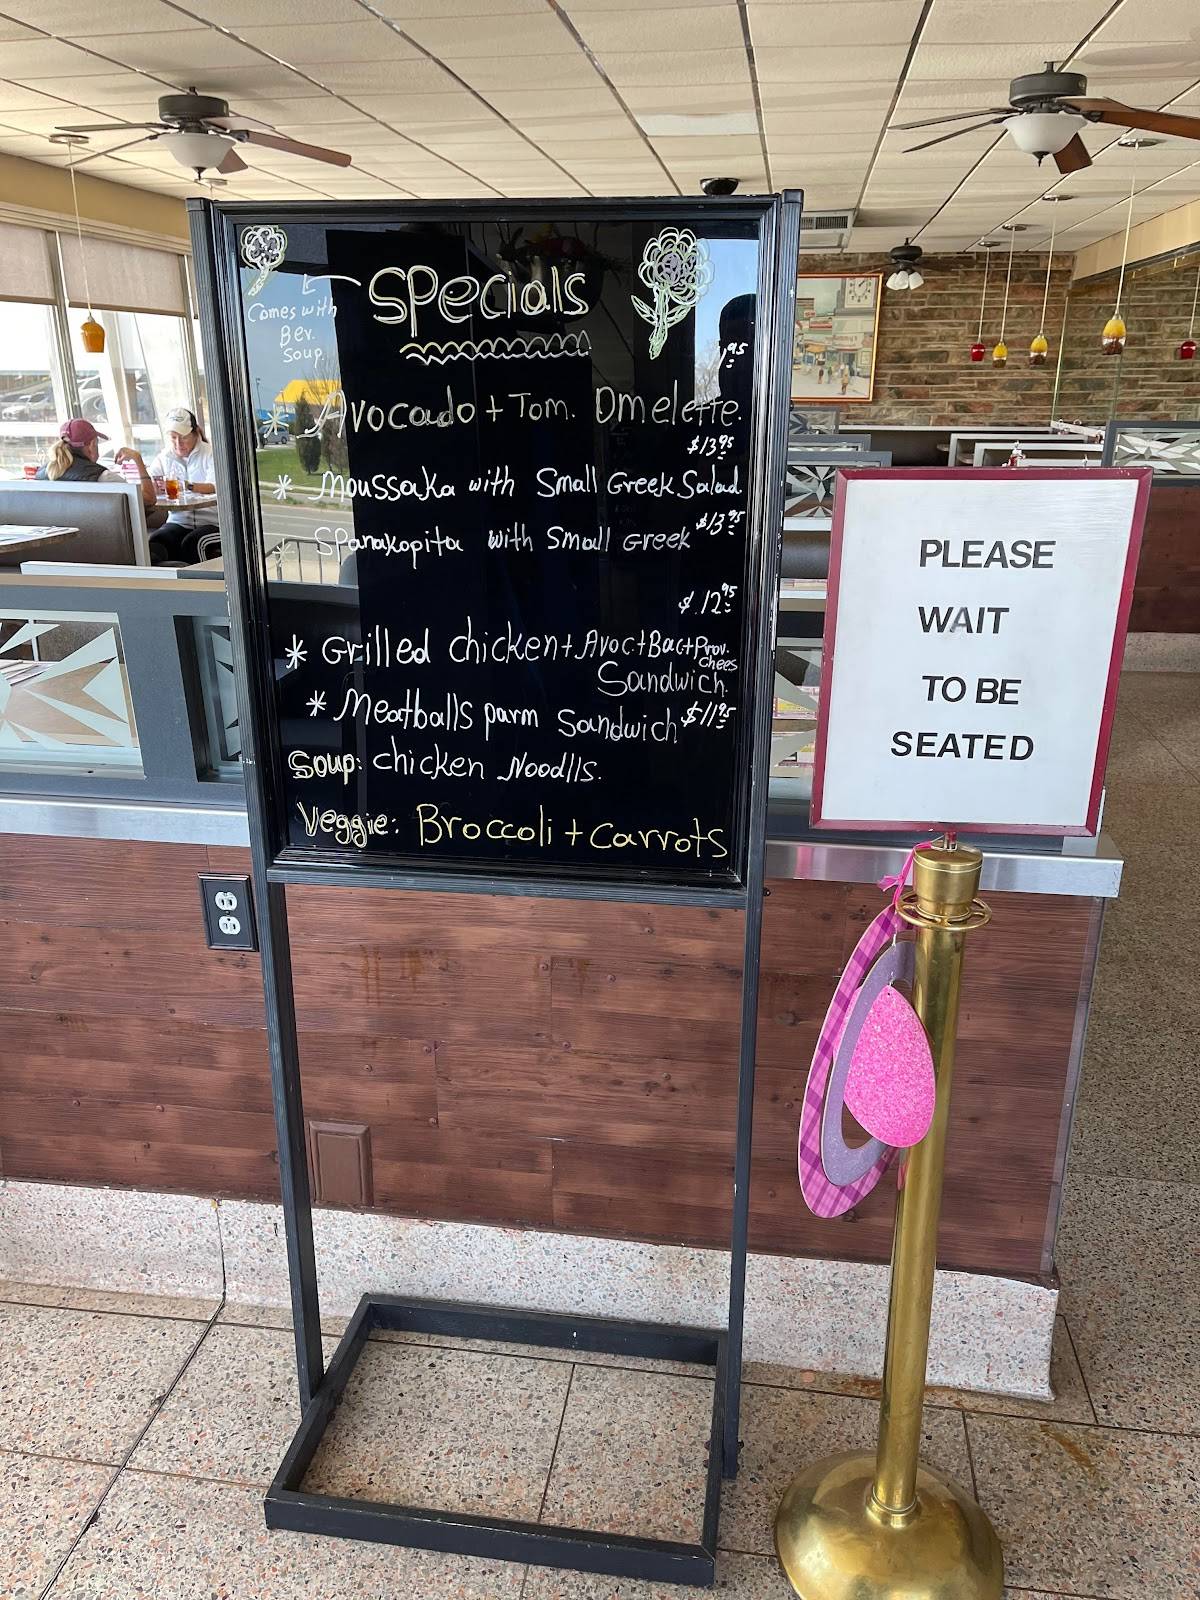 Specials
Comes with
Bev.
Soup.
Avocado + Tom. Omelette.
$13.95
* Moussaka with Small Greek Salad
$13.95
* Spanakopita with Small Greek
$.12.95
* Grilled chicken + Avoc. + Bac + Prov.
chees
Sandwich.
* Meatballs parm Sandwich $11.95
Soup: chicken Noodlls.
Veggie: Broccoli + Carrots
PLEASE
WAIT
TO BE
SEATED